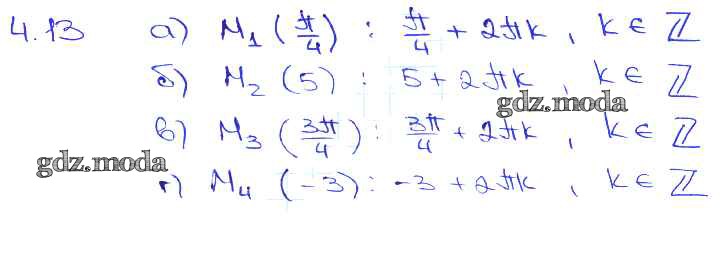 4.13 а) M₁ (π/4) : π/4 + 2πk , k ∈ ℤ
б) M₂ (5) : 5 + 2πk , k ∈ ℤ
gdz.moda
в) M₃ (3π/4) : 3π/4 + 2πk , k ∈ ℤ
gdz.moda
г) M₄ (-3) : -3 + 2πk , k ∈ ℤ